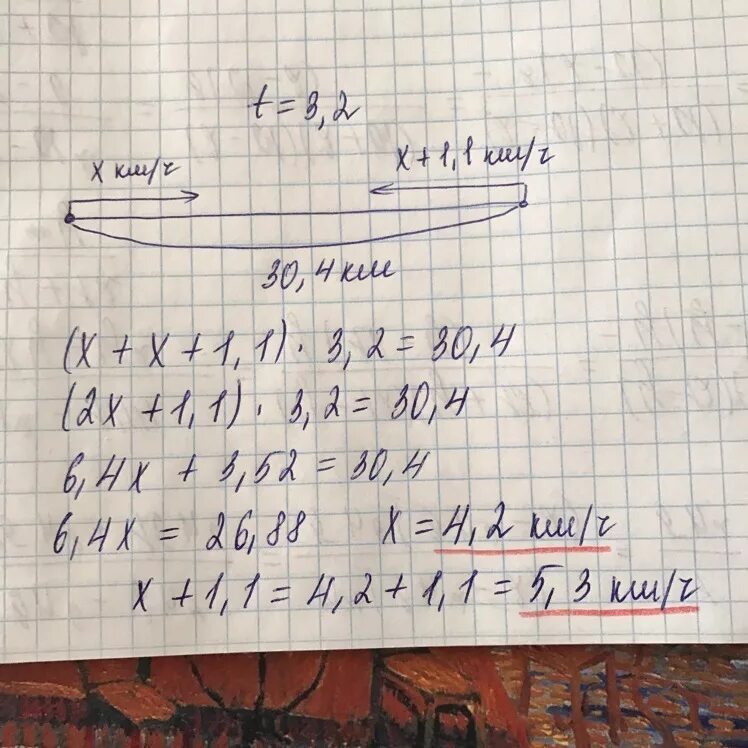 t = 3,2
x км/ч
x + 1,1 км/ч
30,4 км
(x + x + 1,1) · 3,2 = 30,4
(2x + 1,1) · 3,2 = 30,4
6,4x + 3,52 = 30,4
6,4x = 26,88 x = 4,2 км/ч
x + 1,1 = 4,2 + 1,1 = 5,3 км/ч